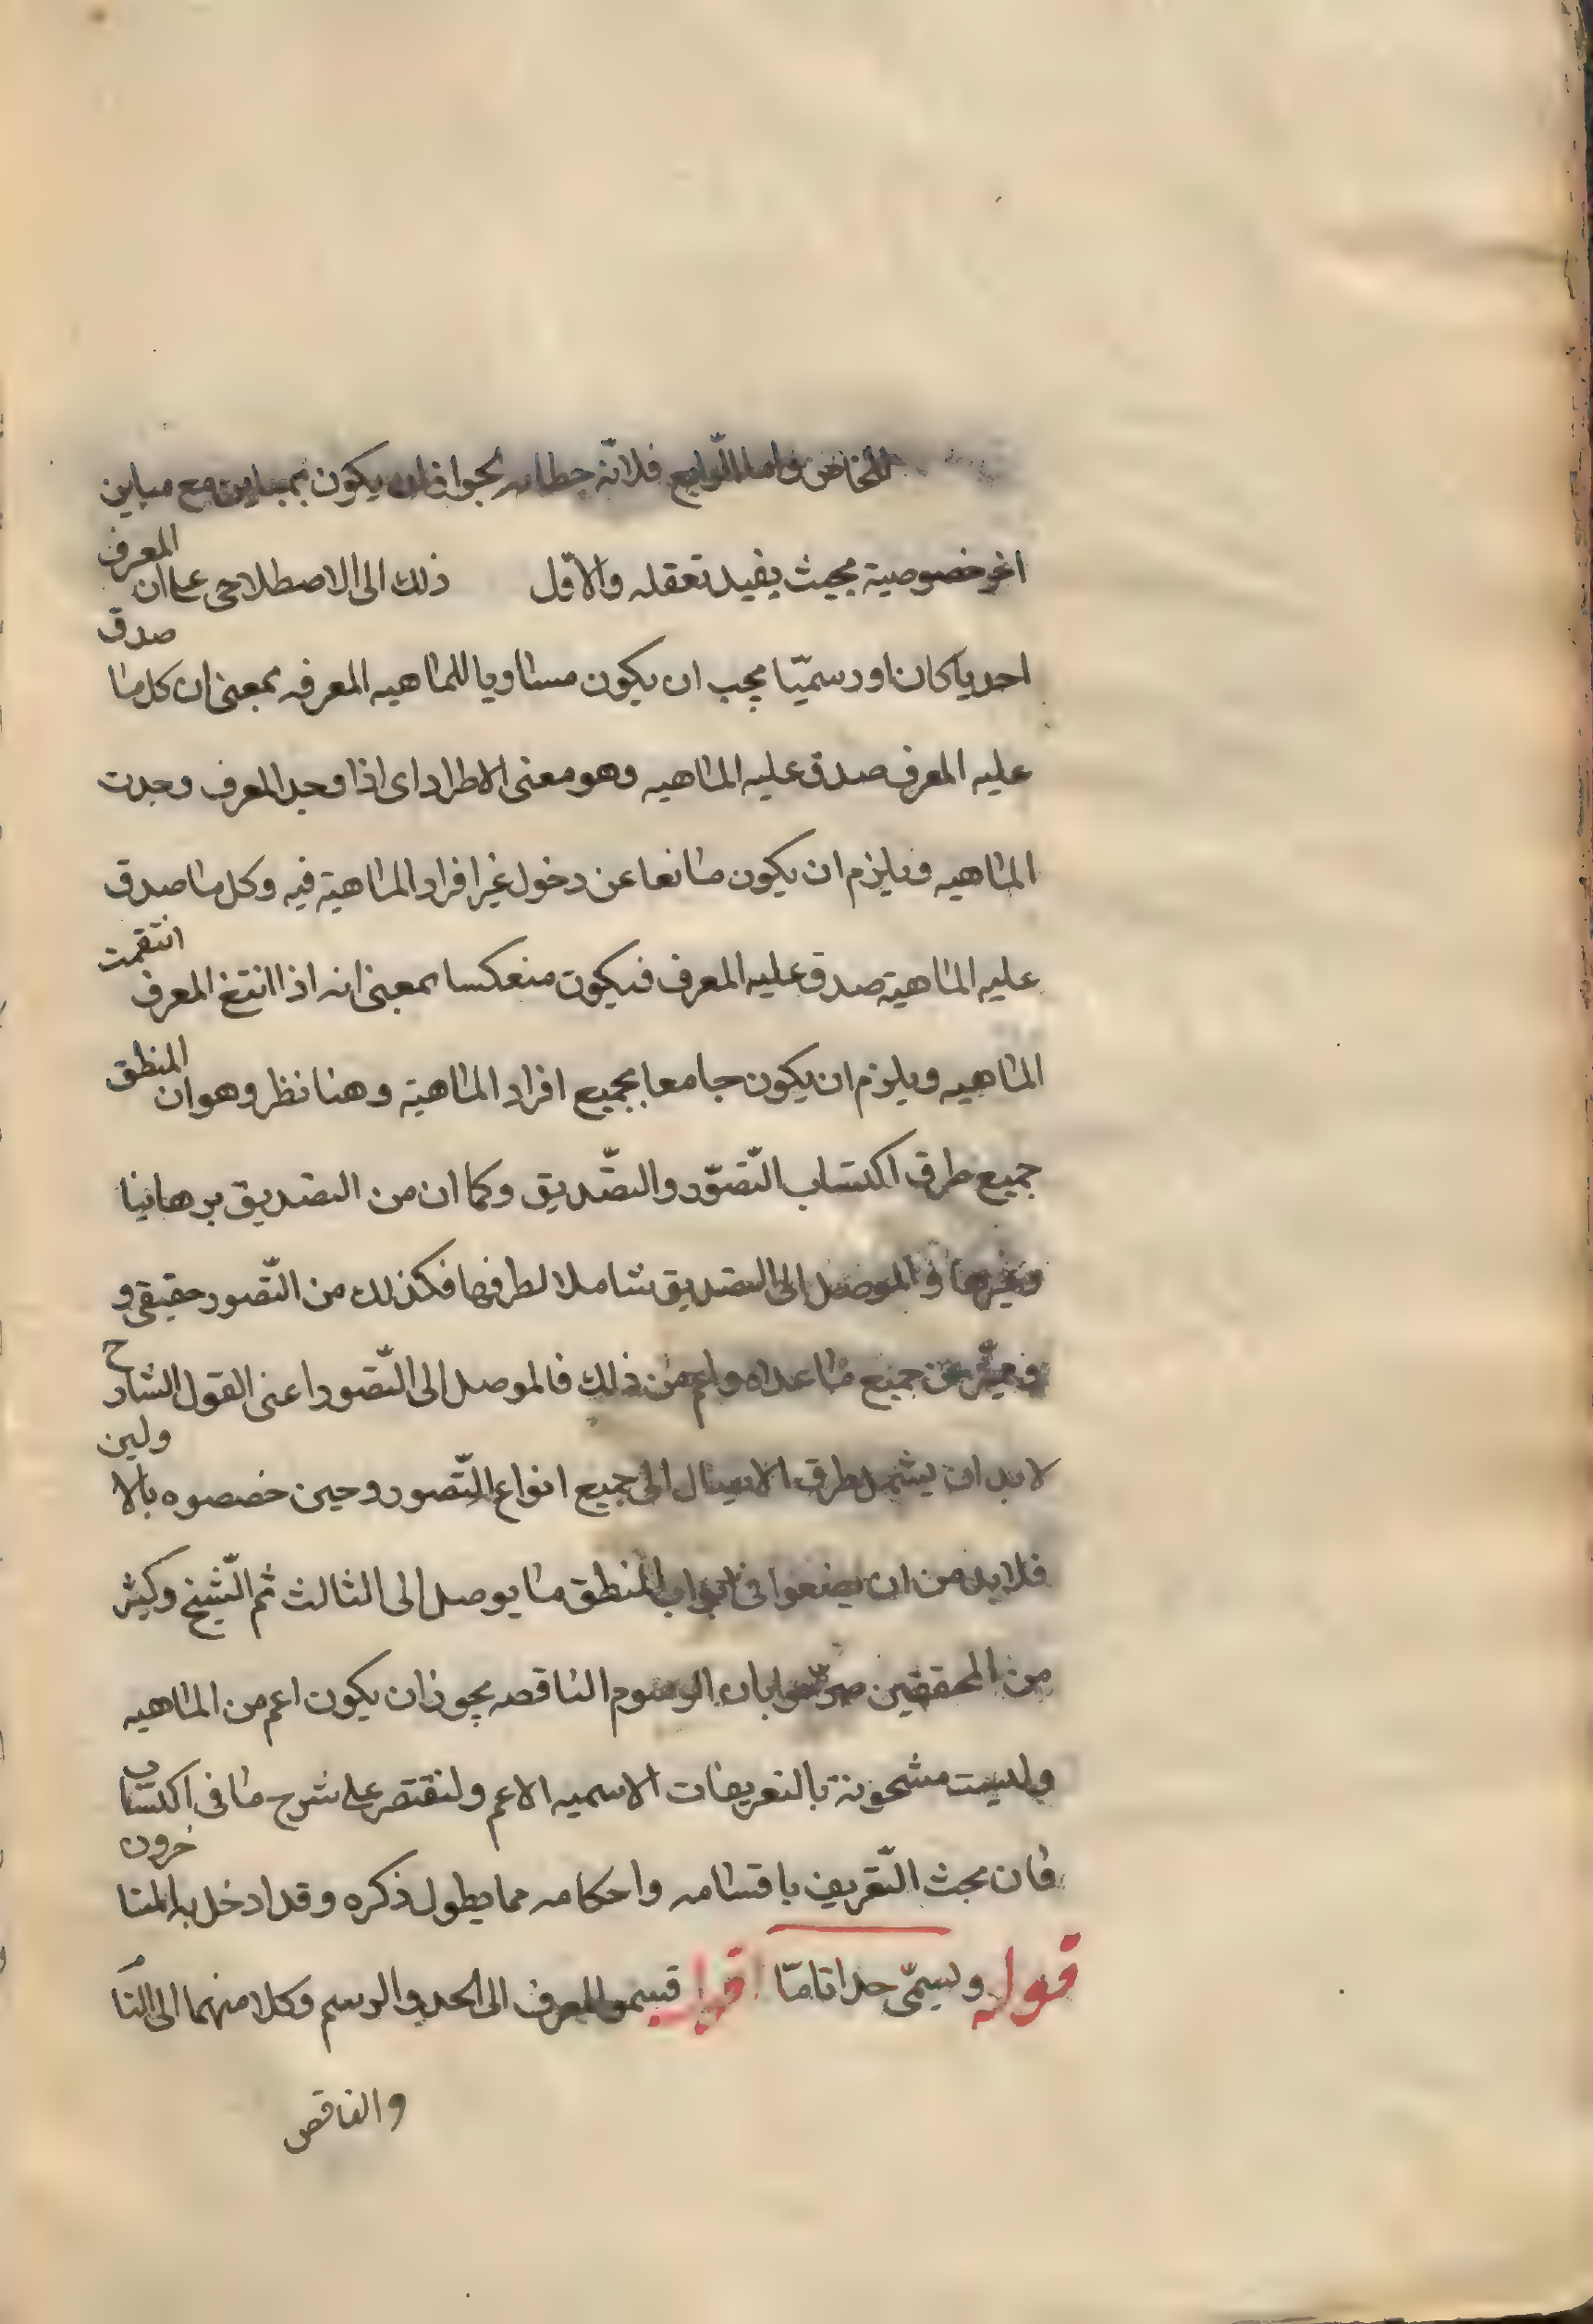 للخاص واما الرابع فلانه خطابه لجواز ان يكون بمباين مع مباين
اخر خصوصية بحيث يفيد تعقله والاول ذلك الى الاصطلاحى على ان المعرف
احديا كان او رسميّا يجب ان يكون مساويا للماهيه المعرفه بمعنى ان كل ما صدق
عليه المعرف صدق عليه الماهيه وهو معنى الاطراد اى اذا وجد المعرف وجدت
الماهيه ويلزم ان يكون مانعا عن دخول غير افراد الماهية فيه وكل ما صدق
عليه الماهية صدق عليه المعرف فيكون منعكسا بمعنى انه اذا انتفى المعرف انتفت
الماهيه ويلزم ان يكون جامعا بجميع افراد الماهية وهنا نظر وهو ان المنطق
جميع طرق اكتساب التّصوّر والتصّديق وكما ان من التصديق برهانيا
وغيرها والموصل الى التصديق شاملا لطرفها فكذلك من التّصور حقيقى و
مميّز عن جميع ما عداه واعم من ذلك فالموصل الى التّصور اعنى القول الشارح
لابد ان يشمل طرق الايصال الى جميع انواع التّصور وحين خصصوه بالاولين
فلابد من ان يضعوا فى ابواب المنطق ما يوصل الى الثالث ثم الشّيخ وكثير
من المحققين صرّحوا بان الرسوم الناقصه يجوز ان يكون اعم من الماهيه
وليست مشحونة بالتعريفات الاسميه الاعم ولنقتصر على شرح ما فى اكتساب
فان بحث التّعريف باقسامه واحكامه مما يطول ذكره وقد ادخل به المتاخرون
قوله ويسمّى حدا تامّا اقول قسموا المعرف الى الحد والرسم وكلا منهما الى التام
والناقص